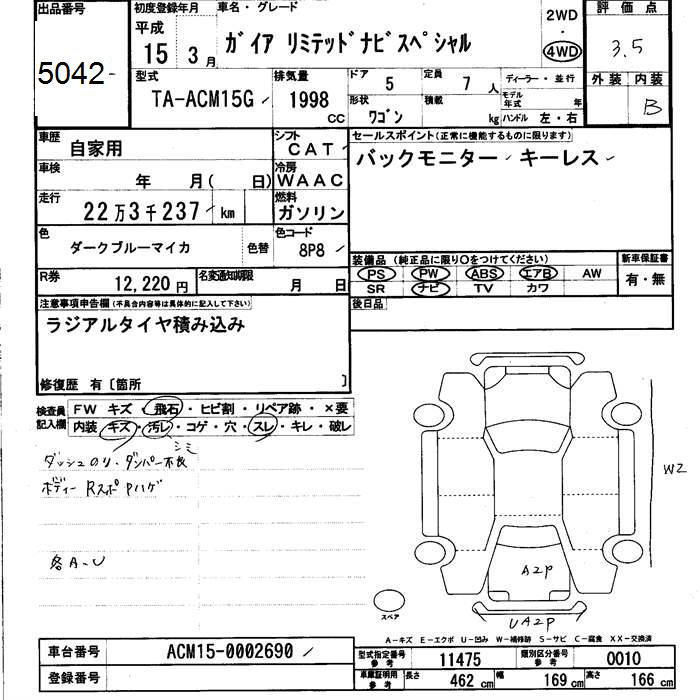 出品番号
5042-
初度登録年月
平成
15 3月
車名・グレード
ガイア リミテッドナビスペシャル
2WD
・
4WD
評価点
3.5
外装 内装
B
型式
TA-ACM15G
排気量
1998
CC
ドア
5
定員
7 人
形状
ワゴン
積載
kg
ディーラー・並行
モデル年式 年
ハンドル 左・右
車歴
自家用
シフト
CAT
車検
年 月( 日)
冷房
WAAC
走行
22万3千237 km
燃料
ガソリン
色
ダークブルーマイカ
色替
色コード
8P8
R券
12,220円
名変通知期限
月 日
セールスポイント(正常に機能するものに限ります)
バックモニター キーレス
装備品(純正品に限り○をつけてください)
PS PW ABS エアB AW
SR ナビ TV カワ
新車保証書
有・無
後日品
注意事項申告欄(不具合内容等は具体的に記入して下さい)
ラジアルタイヤ積み込み
修復歴 有〔箇所 〕
検査員記入欄
FW キズ・飛石・ヒビ割・リペア跡・×要
内装・キズ・汚レ・コゲ・穴・スレ・キレ・破レ
シミ
ダッシュのり・ダンパー不良
ボディー RスポPハゲ
各A-U
W2
A2P
UA2P
スペア
A-キズ E-エクボ U-凹み W-補修跡 S-サビ C-腐食 XX-交換済
車台番号
ACM15-0002690
登録番号
型式指定番号
参考
11475
類別区分番号
参考
0010
車庫証明用
参考
長さ
462 cm
幅
169 cm
高さ
166 cm